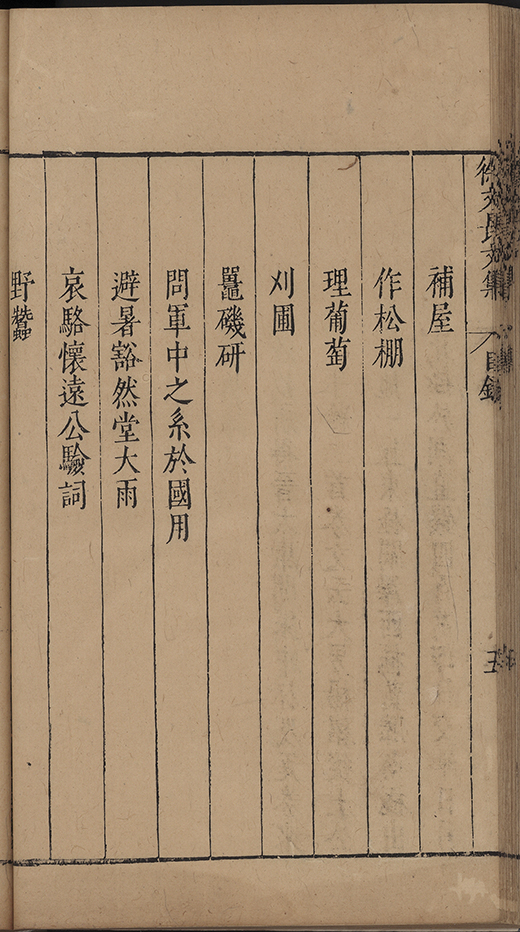 徐文長文集 目錄 五
補屋
作松棚
理葡萄
刈圃
鼉磯研
問軍中之系於國用
避暑豁然堂大雨
哀駱懷遠公驗詞
野蠶